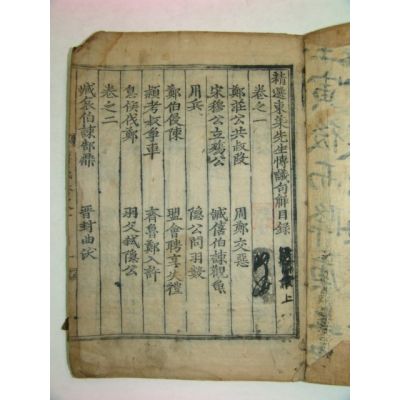 精選東萊先生愽議句解目録
卷之一 上
鄭莊公共叔段 周鄭交惡
宋穆公立殤公 臧僖伯諫觀魚
用兵 隱公問羽數
鄭伯侵陳 盟會聘享失禮
潁考叔爭車 齊魯鄭入許
息侯伐鄭 羽父弑隱公
卷之二
臧哀伯諫郜鼎 晋封曲沃